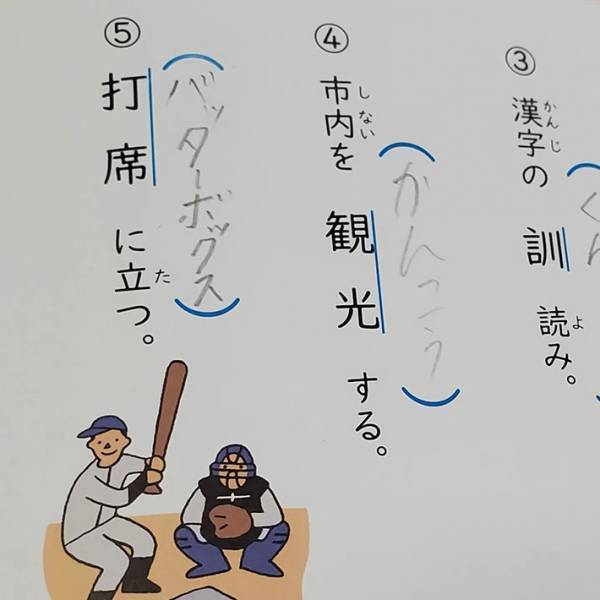 ③
漢字の訓読み。
かんじ
よ
④
市内を観光する。
しない
かんこう
⑤
打席に立つ。
た
バッターボックス